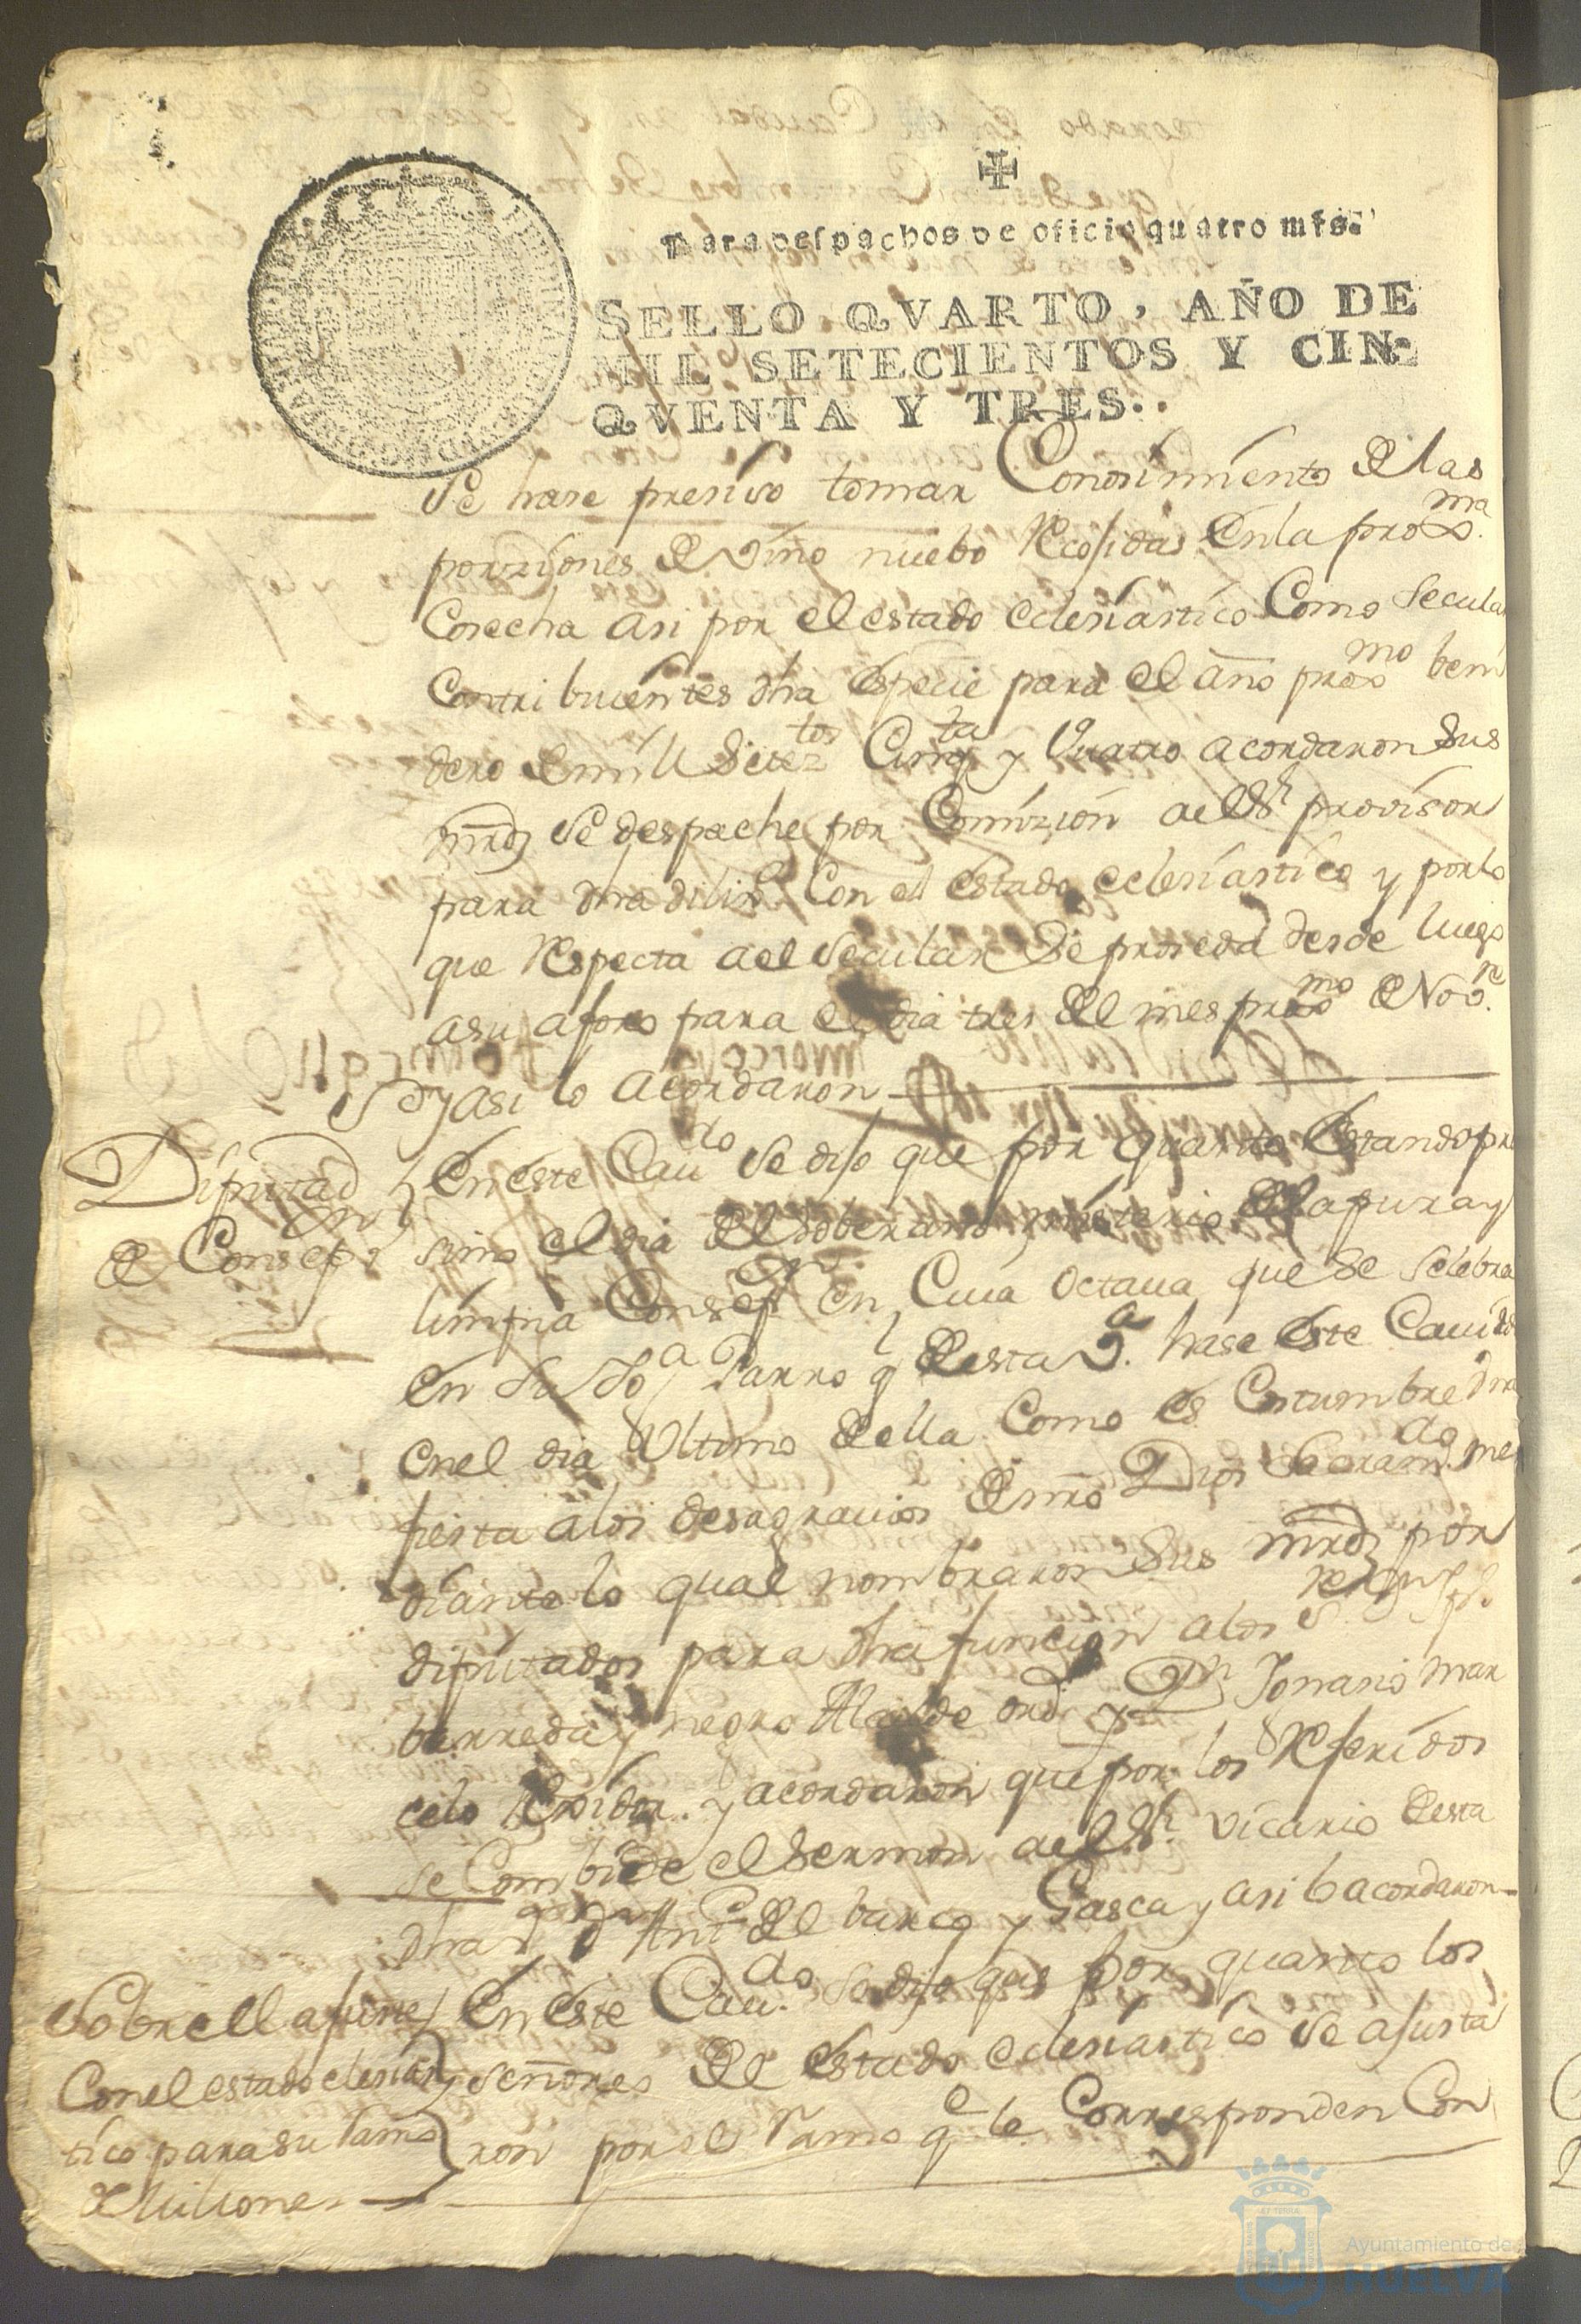 Para despachos de oficio quatro mrs.
SELLO QVARTO, AÑO DE
MIL SETECIENTOS Y CIN-
QVENTA Y TRES..
Se hase presiso tomar Conosimiento de las
porziones de vino nuebo Recojidas en la proxma
Cosecha asi por el estado eclesiastico Como Secular
Contribuientes dha espezie para el año proxmo beni
dero de mill Seteztos Cinqta y Quatro acordaron Sus
mrds Se despache por Comizion a el Sr provisor
para dha diliga Con el estado eclesiastico y por lo
que Respecta a el Secular Se proseda desde luego
a su aforo para el dia tres del mes proxmo de Novre
y asi lo acordaron
Diputados
de Consepn
En este Cavdo Se dijo que por quanto Estando pro
simo el dia del Soberano misterio de la pura y
limpia Consepn en Cuia Octaua que Se Selebra
en Su Yga Parroql de esta Va hase este Cauildo
en el dia Ultimo de ella Como es Costumbre dha
fiesta a los desagrauios de nro Dios Sacramdo me
diante lo qual nombraron Sus mrds por
diputados para dha funcion a los Sres Dn Jph
barreda y negro Alcalde ordo y Dn Ygnasio mar
celo Rexidor y acordaron que por los Referidos
se Combide el Sermon a el Sr Vicario de esta
dha Va Dn Anto del barco y Gasca y asi lo acordaron
Sobre el ajuste
Con el estado eclesias
tico para su Ramo
de Millones
En este Cavdo Se dijo que por quanto los
Señores del estado eclesiastico Se ajusta
ron por el Ramo qe le Corresponden Con
Ayuntamiento de
HUELVA